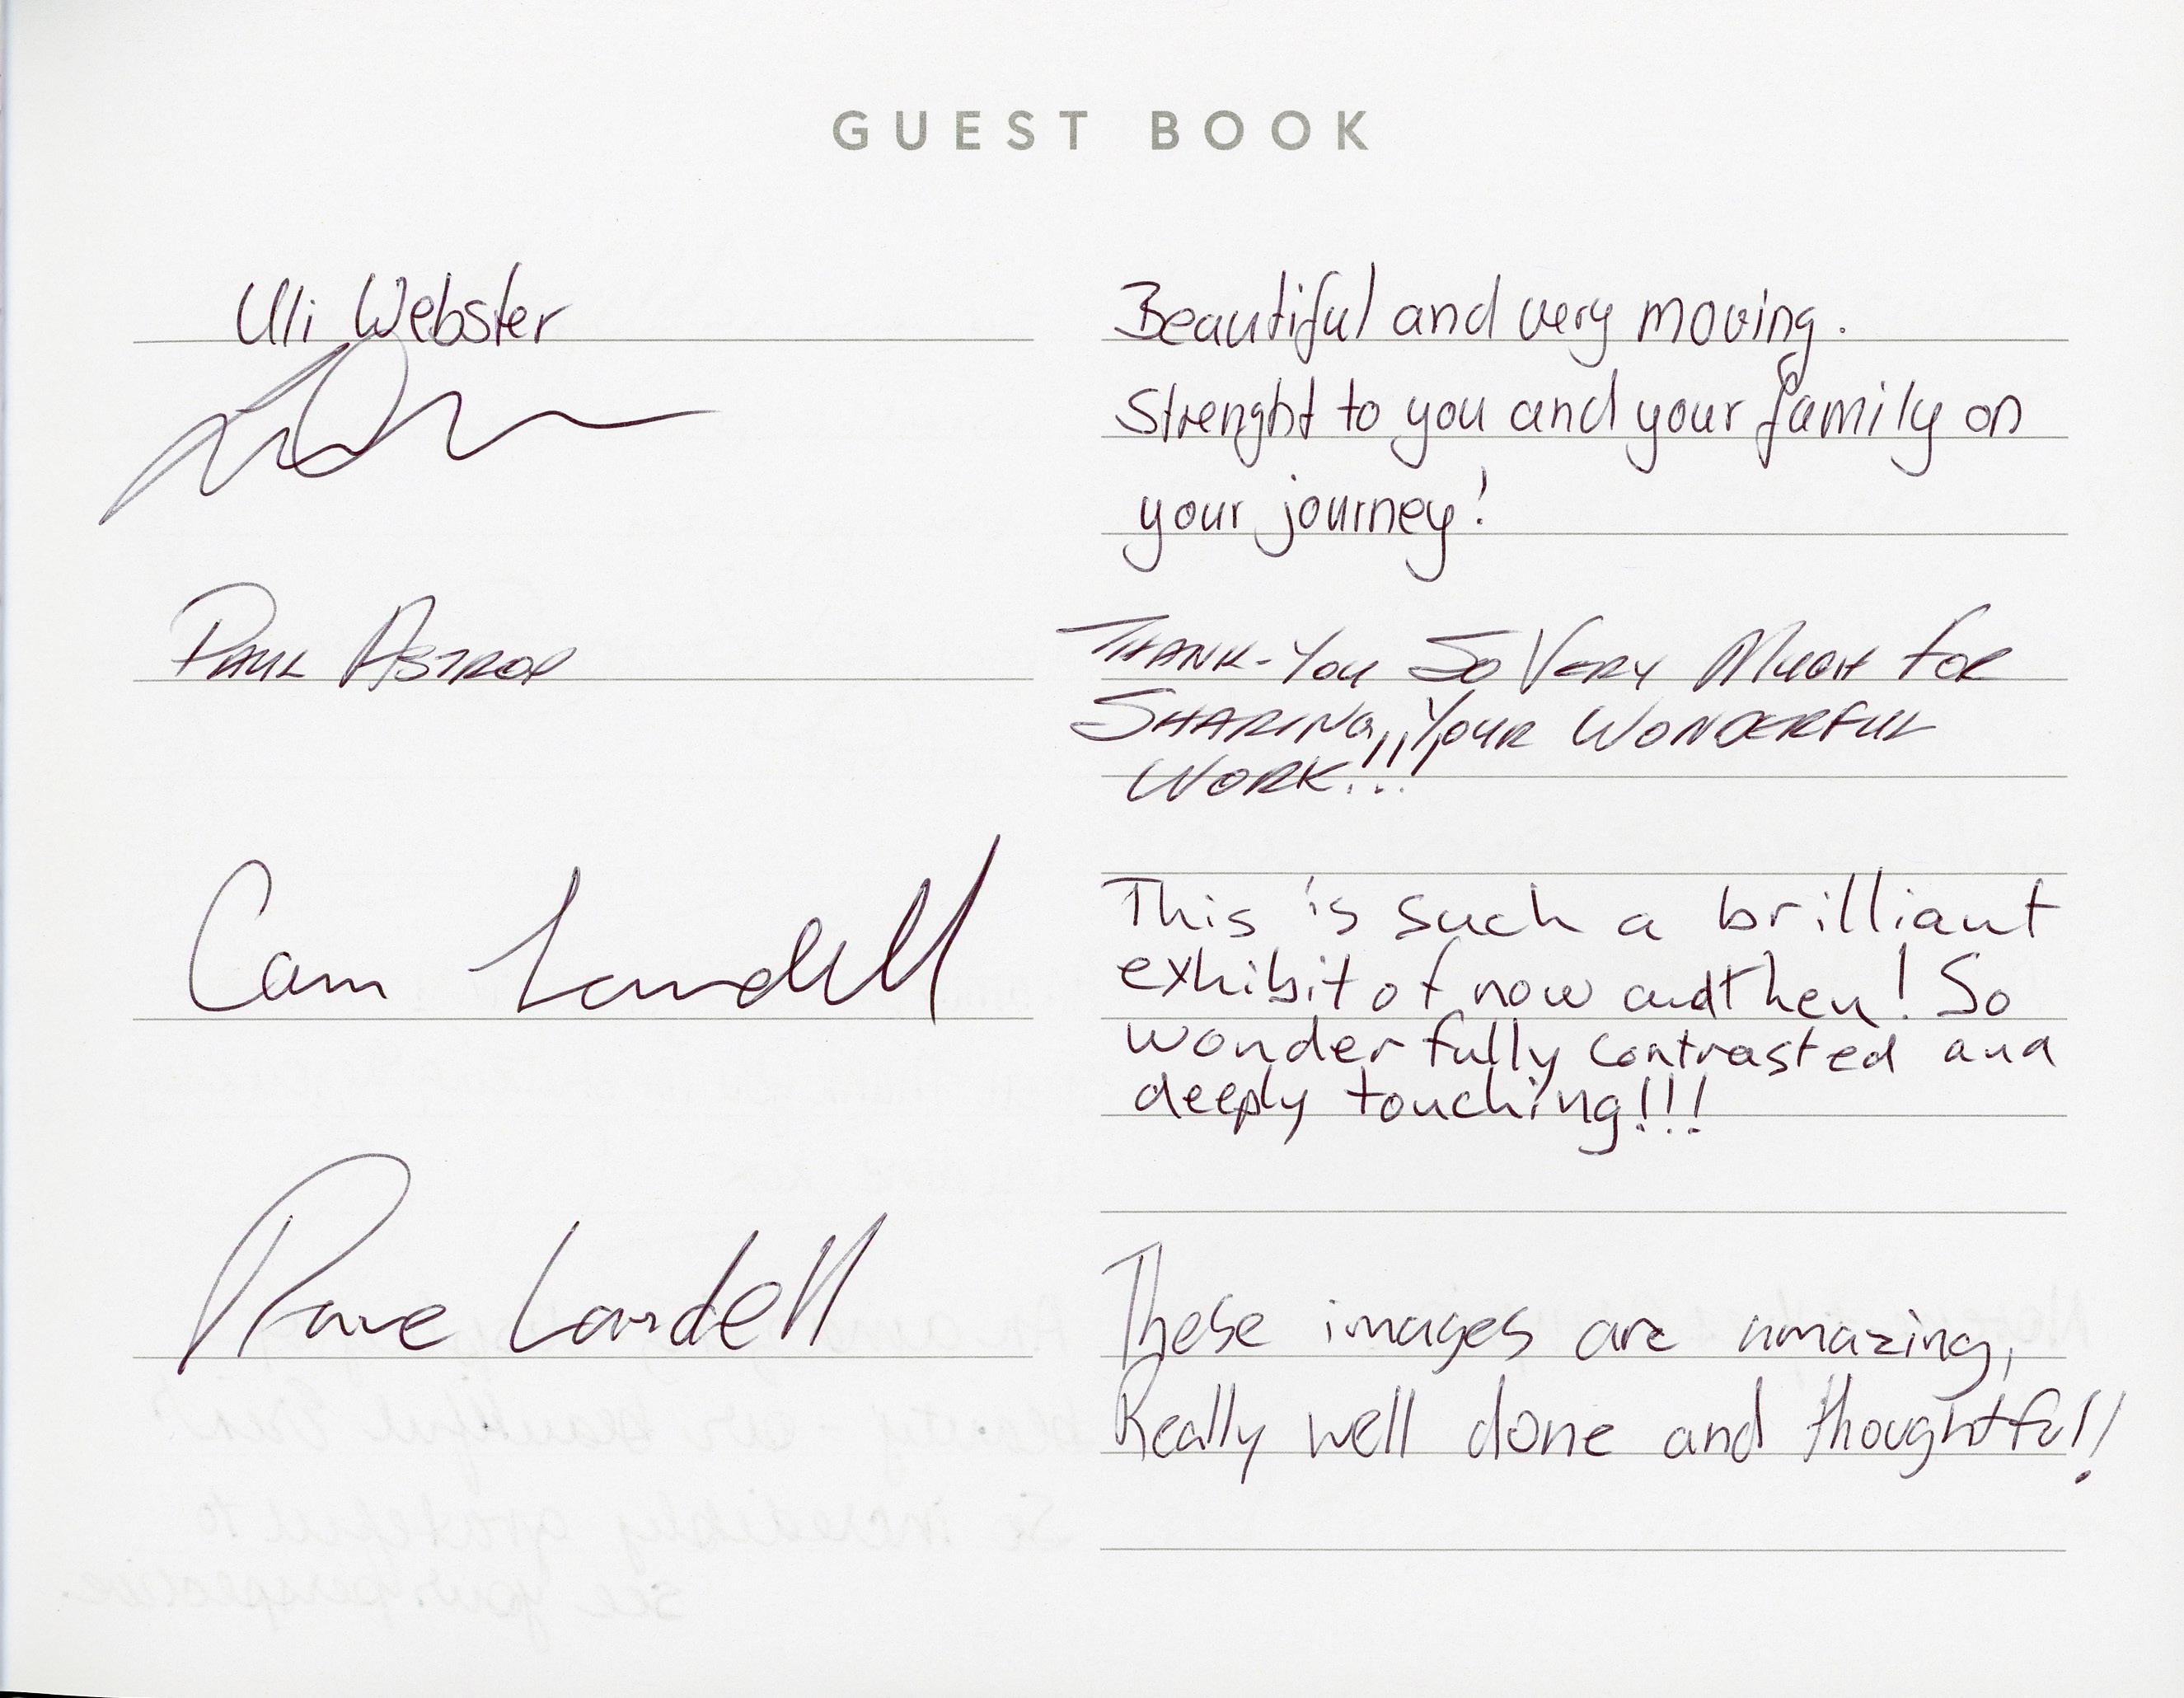 GUEST BOOK
Uli Webster
Beautiful and very moving.
Strenght to you and your family on
your journey!
PAUL ASTROP
THANK-YOU SO VERY MUCH FOR
SHARING, YOUR WONDERFUL
WORK!!!
Cam Landell
This is such a brilliant
exhibit of now and then! So
wonderfully contrasted and
deeply touching!!!
Landell
These images are amazing,
Really well done and thoughtful!